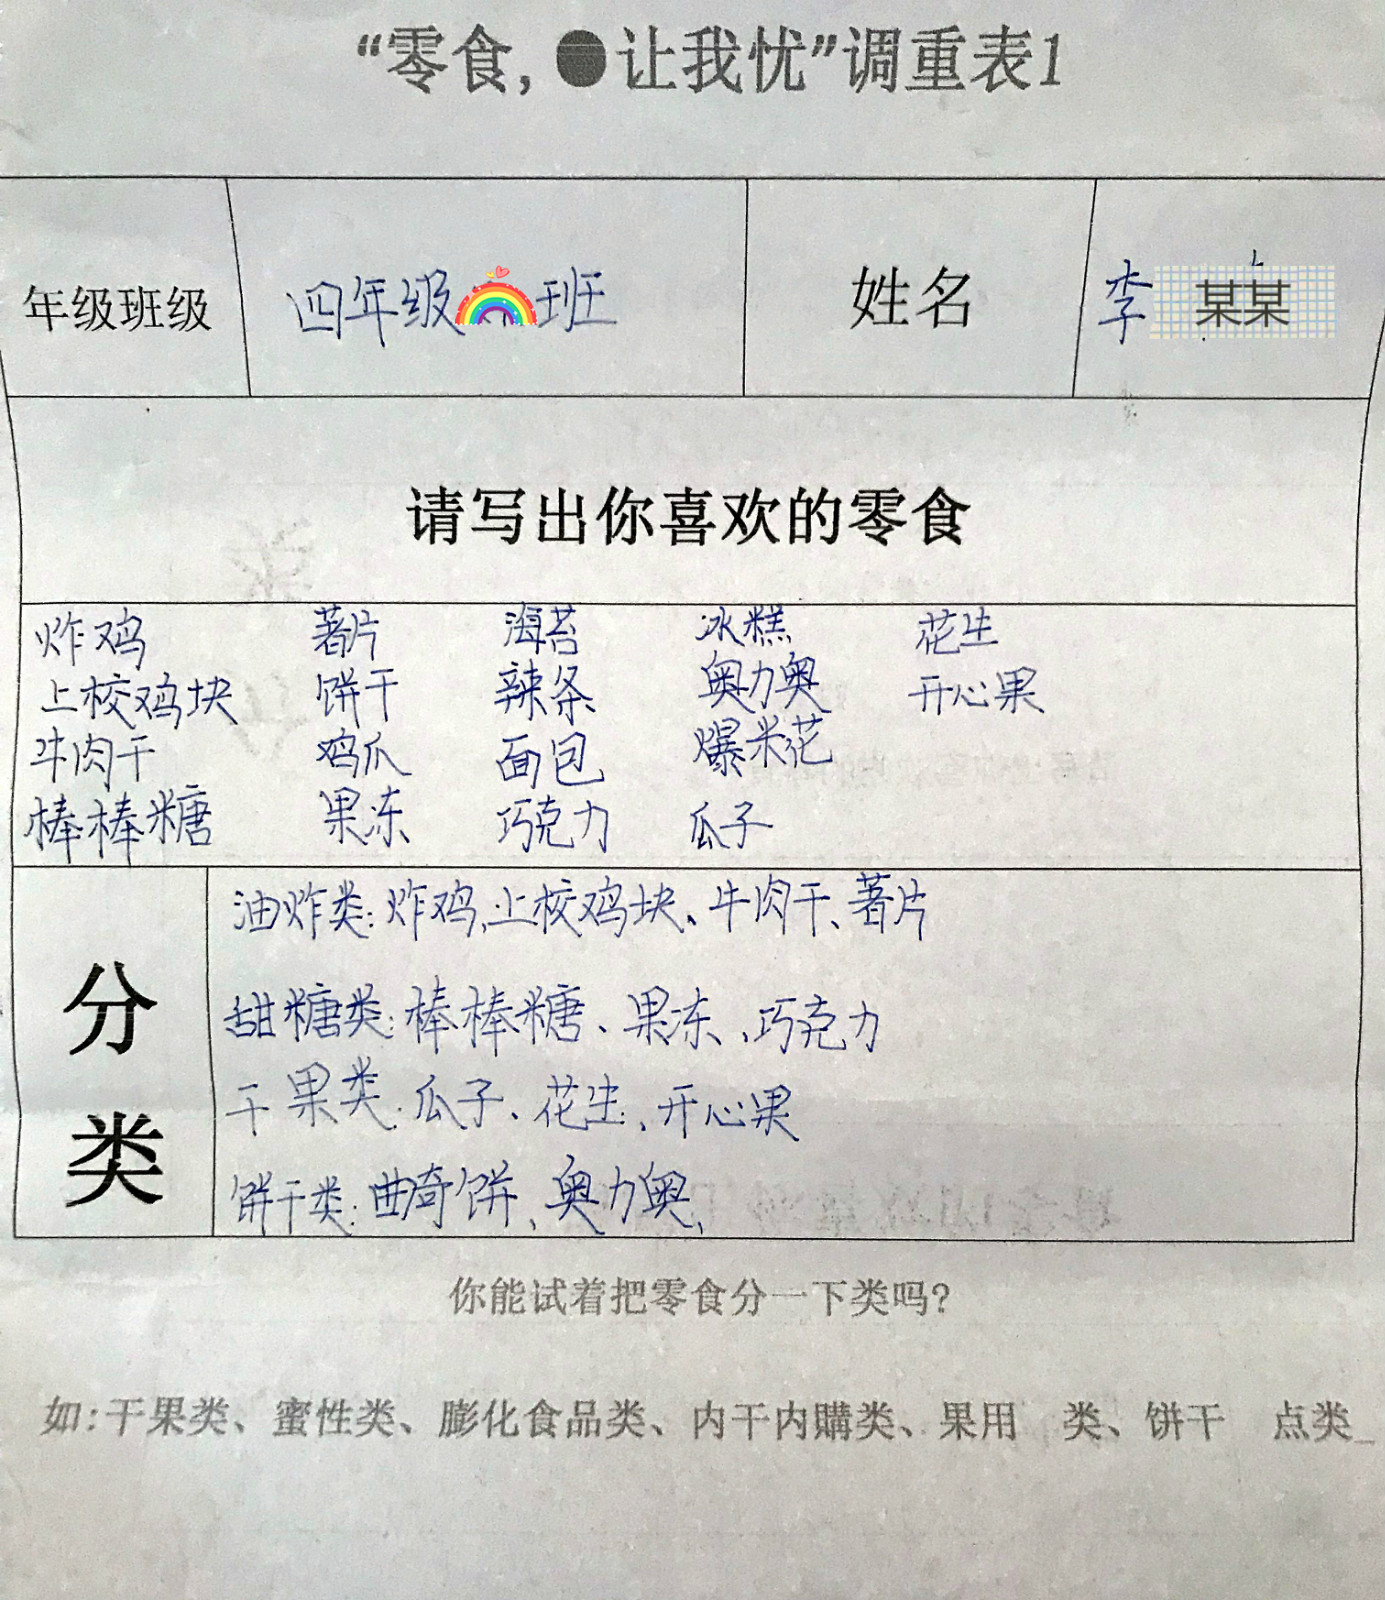 “零食,●让我忧”调重表1
年级班级 四年级 班 姓名 李 某某
请写出你喜欢的零食
炸鸡 薯片 海苔 冰糕 花生
上校鸡块 饼干 辣条 奥力奥 开心果
牛肉干 鸡爪 面包 爆米花
棒棒糖 果冻 巧克力 瓜子
分类
油炸类:炸鸡、上校鸡块、牛肉干、薯片
甜糖类:棒棒糖、果冻、巧克力
干果类:瓜子、花生、开心果
饼干类:曲奇饼、奥力奥、
你能试着把零食分一下类吗?
如:干果类、蜜性类、膨化食品类、内干内購类、果用 类、饼干 点类_